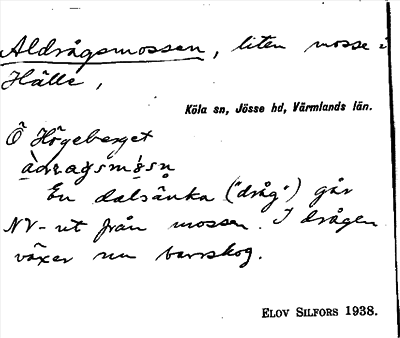 Aldrågsmossen, liten mosse i
Hälle,
Köla sn, Jösse hd, Värmlands län.
Ö Högeberget
En dalsänka ("dråg") går
NV-ut från mossen. I drågen
växer nu barrskog.
ELOV SILFORS 1938.